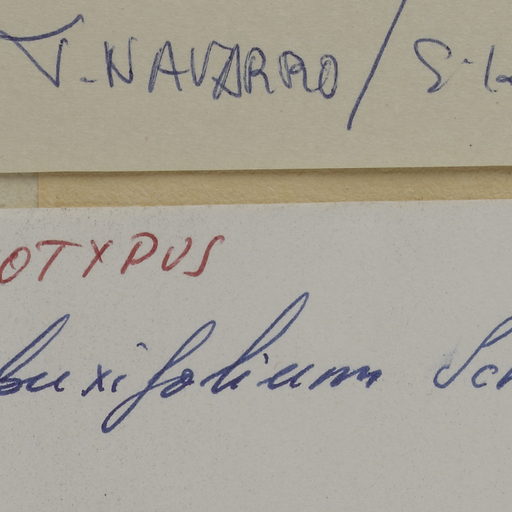 T. NAVARRO/
OTYPUS
buxifolium Sch